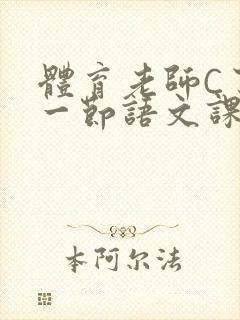 體育老師C
一節語文課
本阿尔法